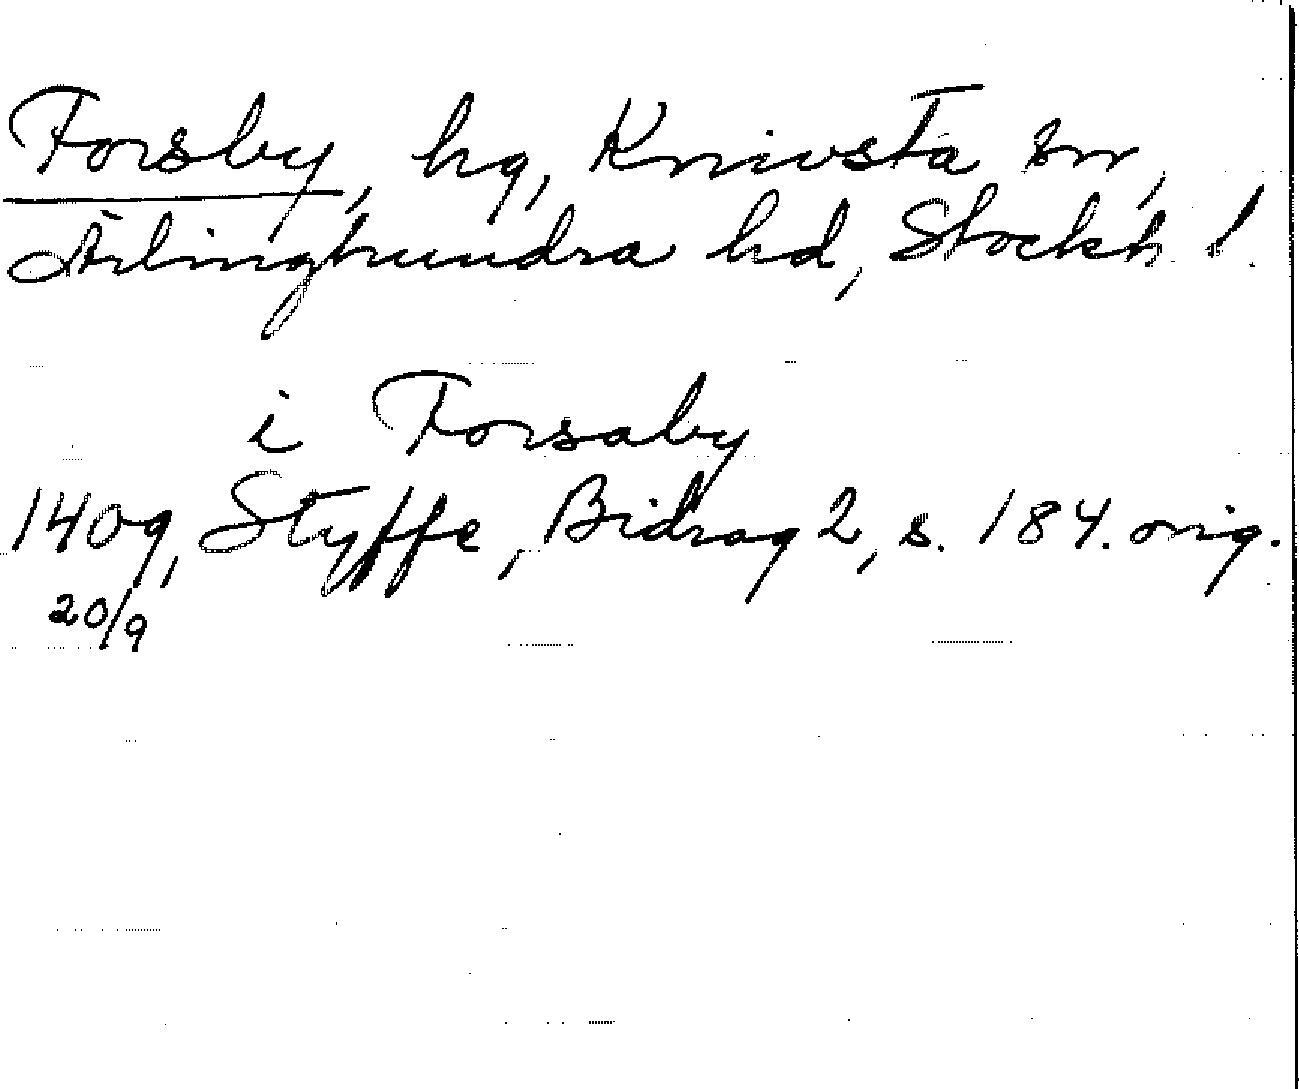 Forsby, hg, Knivsta sn,
Ärlinghundra hd, Stockh. l.
i Forsaby
1409, Styffe, Bidrag 2, s. 184. orig.
20/9